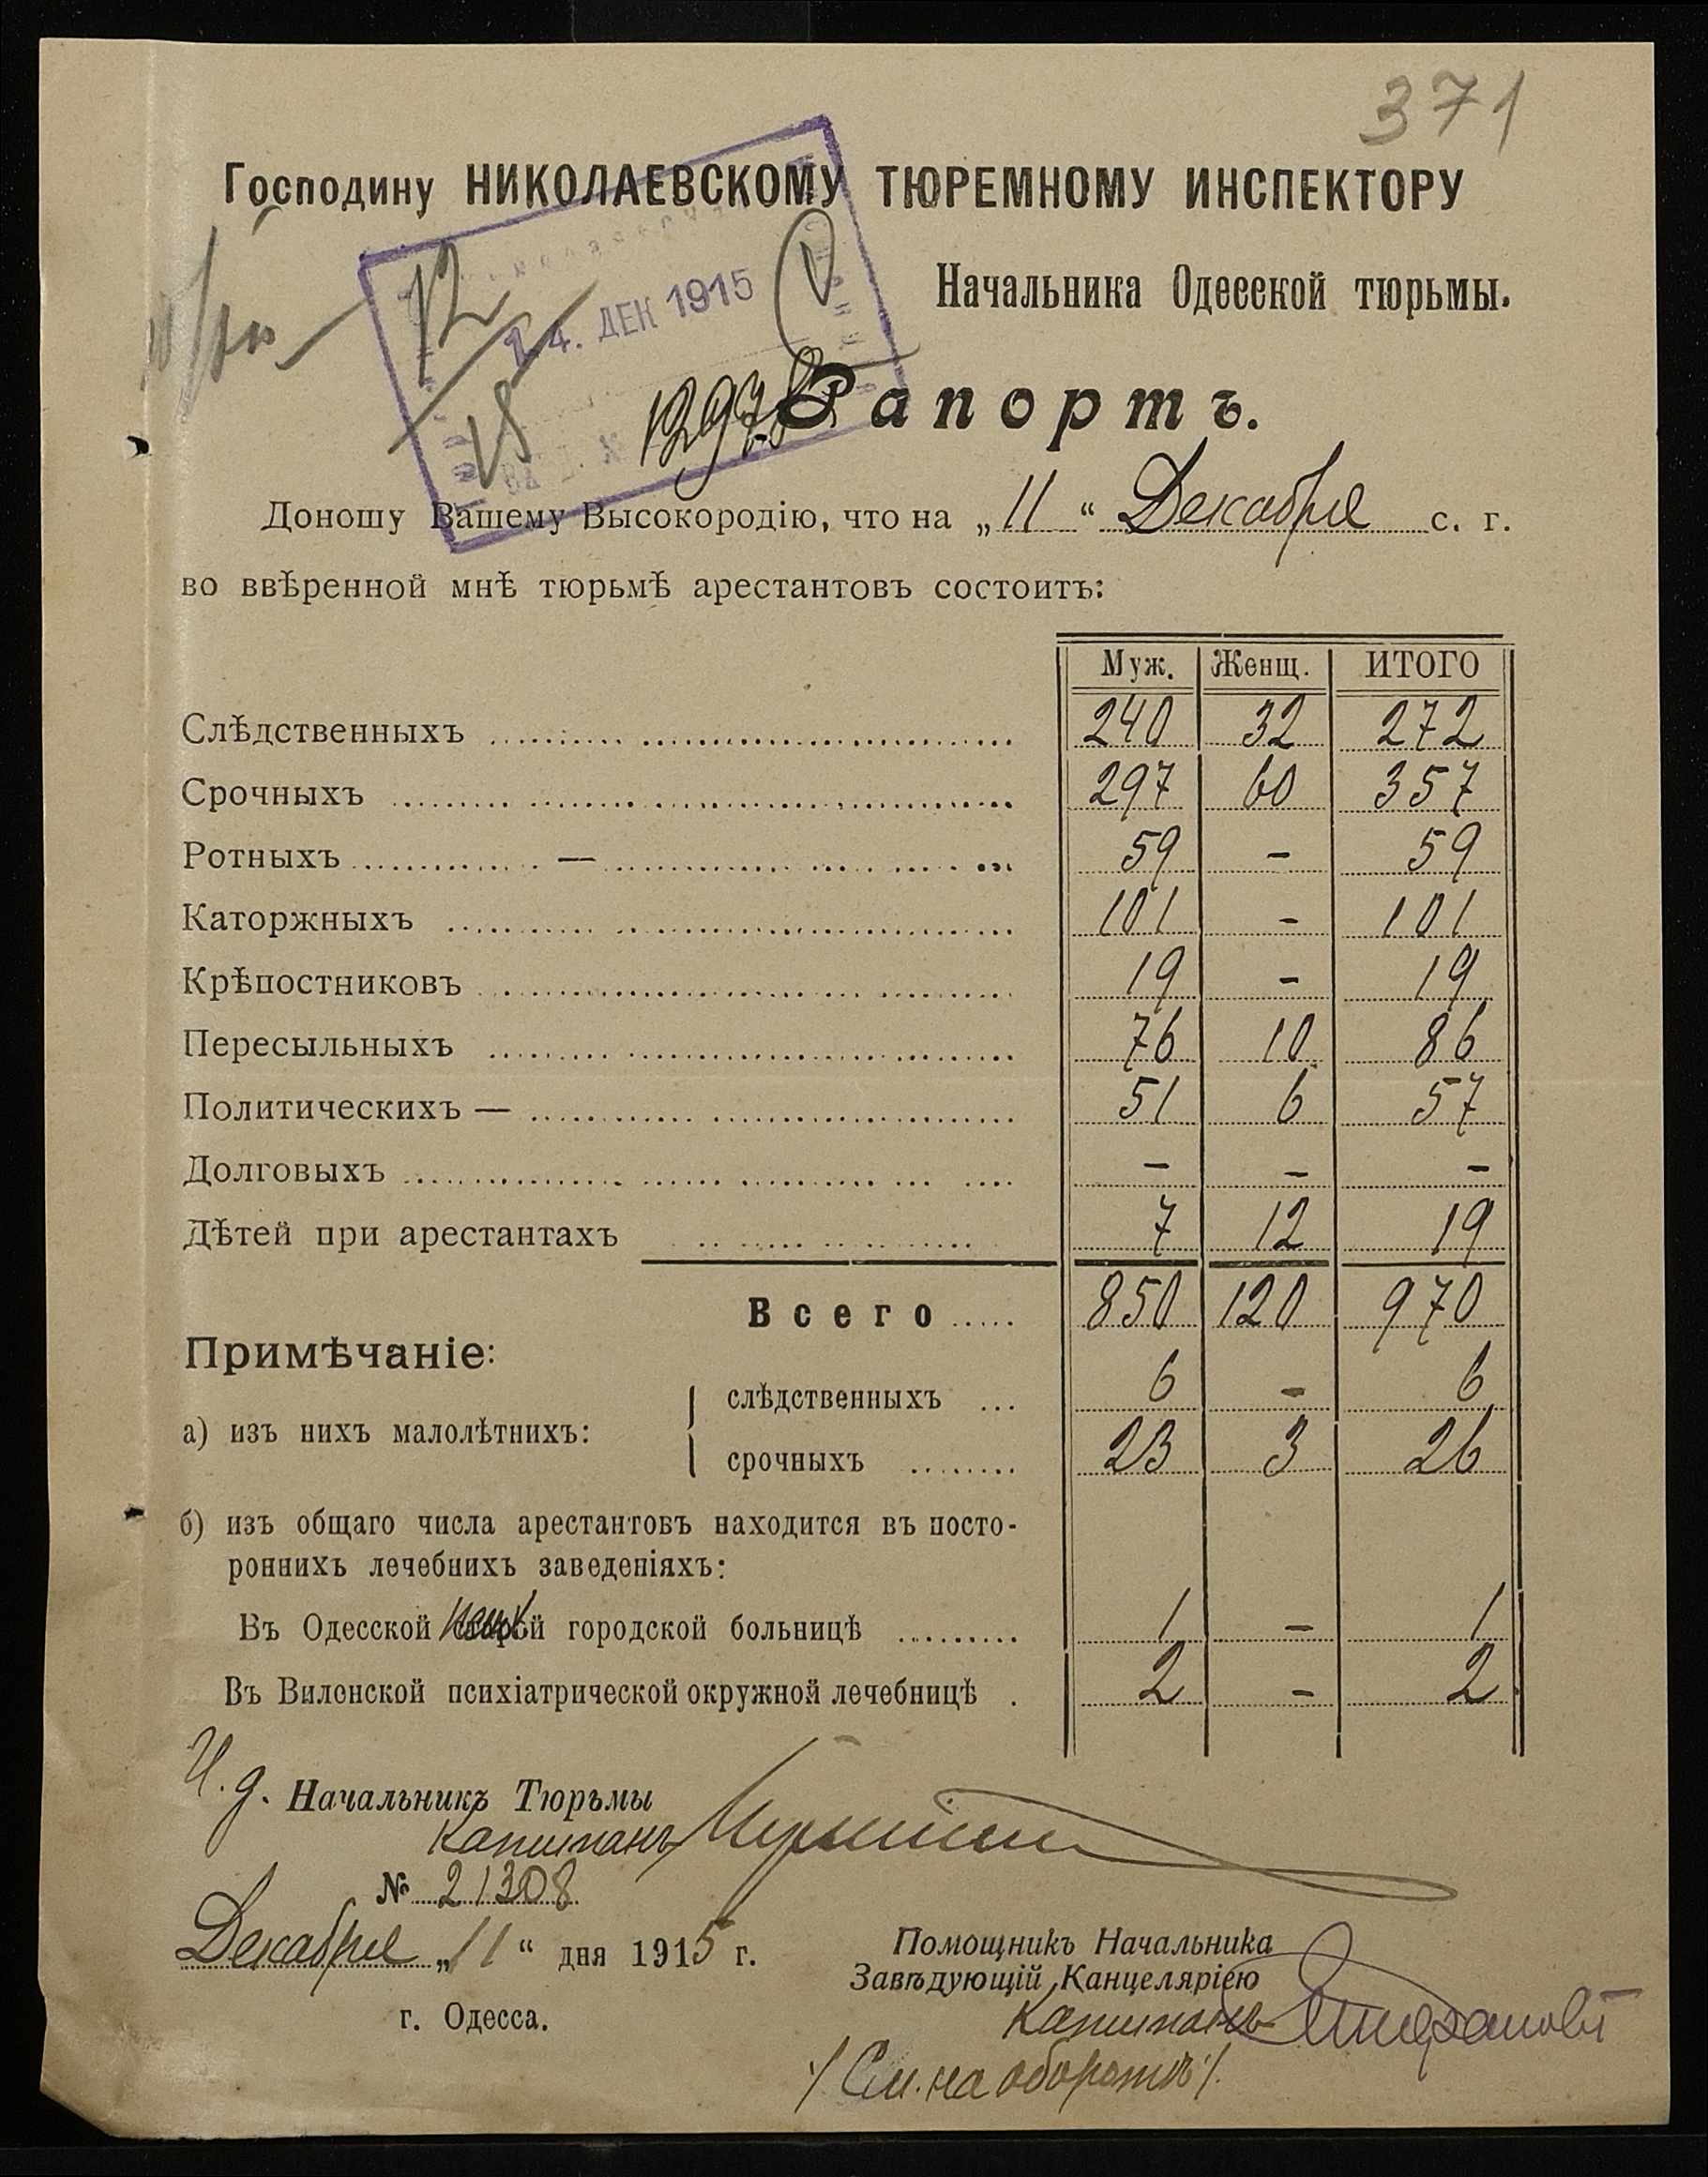 371
Господину НИКОЛАЕВСКОМУ ТЮРЕМНОМУ ИНСПЕКТОРУ
Начальника Одесской тюрьмы.
12
14. ДЕК 1915
18
Рапортъ.
Доношу Вашему Высокородію, что на „11“ Декабря с. г.
во ввѣренной мнѣ тюрьмѣ арестантовъ состоитъ:
Муж. Женщ. ИТОГО
Слѣдственныхъ 240 32 272
Срочныхъ 297 60 357
Ротныхъ — 59 - 59
Каторжныхъ 101 - 101
Крѣпостниковъ 19 - 19
Пересыльныхъ 76 10 86
Политическихъ — 51 6 57
Долговыхъ - - -
Дѣтей при арестантахъ 7 12 19
Всего 850 120 970
Примѣчаніе:
слѣдственныхъ 6 - 6
а) изъ нихъ малолѣтнихъ:
срочныхъ 23 3 26
б) изъ общаго числа арестантовъ находится въ посто-
роннихъ лечебнихъ заведеніяхъ:
Въ Одесской городской больницѣ 1 - 1
Въ Виленской психіатрической окружной лечебницѣ 2 - 2
И. д. Начальникъ Тюрьмы
Капитанъ
№ 21308
Декабря „11“ дня 1915 г.
г. Одесса.
Помощникъ Начальника
Завѣдующій Канцеляріею
Капитанъ
/См. на оборотѣ/.